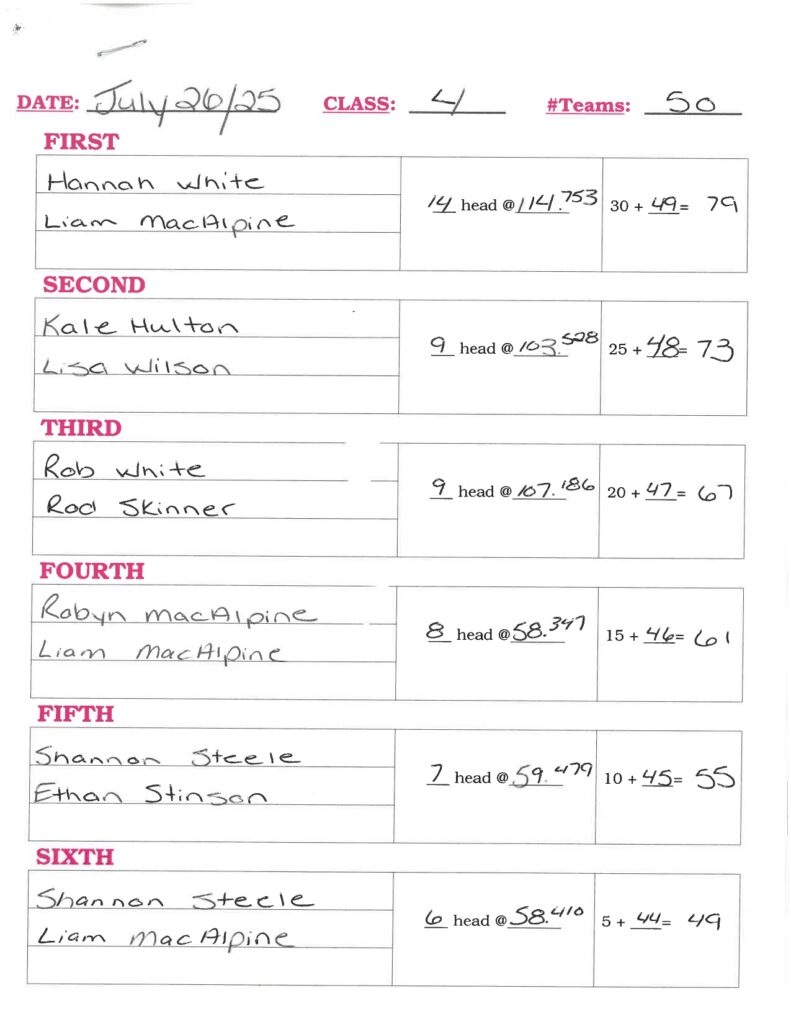 DATE: July 26/25 CLASS: 4 #Teams: 50
FIRST
Hannah White
Liam MacAlpine
14 head @ 114.753 30 + 49 = 79
SECOND
Kale Hulton
Lisa Wilson
9 head @ 103.528 25 + 48 = 73
THIRD
Rob White
Rod Skinner
9 head @ 107.186 20 + 47 = 67
FOURTH
Robyn MacAlpine
Liam MacAlpine
8 head @ 58.347 15 + 46 = 61
FIFTH
Shannon Steele
Ethan Stinson
7 head @ 59.479 10 + 45 = 55
SIXTH
Shannon Steele
Liam MacAlpine
6 head @ 58.410 5 + 44 = 49